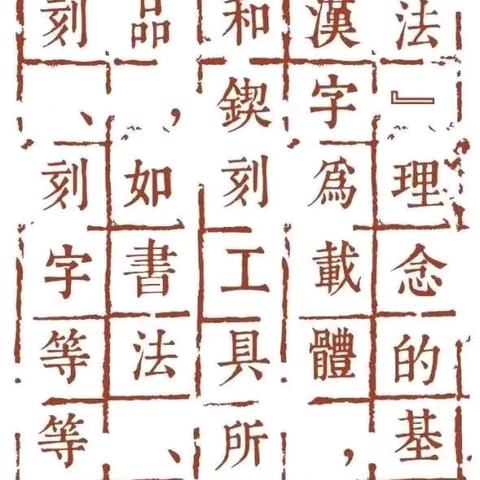 法』理念的基
漢字爲載體，
和鍥刻工具所
品，如書法、
刻、刻字等等